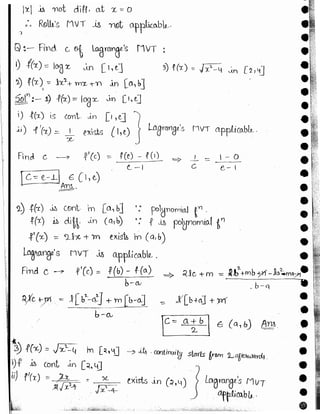 |x| is not diff. at x = 0
∴ Rolle's MVT is not applicable.
Q:- Find c of Lagrange's MVT :
1) f(x) = log x in [1,e] 3) f(x) = √x²-4 in [2,4]
2) f(x) = lx²+mx+n in [a,b]
Solⁿ:- 1) f(x) = log x in [1,e]
i) f(x) is cont. in [1,e]
ii) f'(x) = 1/x exists (1,e) } Lagrange's MVT applicable.
Find c → f'(c) = f(e) - f(1) / e - 1 ⇒ 1/c = 1 - 0 / e - 1
C = e - 1 ∈ (1,e)
Ans.
2) f(x) is cont in [a,b] ∵ polynomial fⁿ.
f(x) is diff. in (a,b) ∵ f is polynomial fⁿ
f'(x) = 2lx + m exists in (a,b)
Lagrange's MVT is applicable.
Find c → f'(c) = f(b) - f(a) / b-a ⇒ 2lc + m = lb²+mb+n - la²-ma-n / b-a
2lc + m = l[b²-a²] + m[b-a] / b-a = l[b+a] + m
C = a+b / 2 ∈ (a,b) Ans
3) f(x) = √x²-4 in [2,4] → its continuity starts from 2 afterwards.
i) f is cont in [2,4]
ii) f'(x) = 2x / 2√x²-4 = x / √x²-4 exists in (2,4) } Lagrange's MVT applicable.